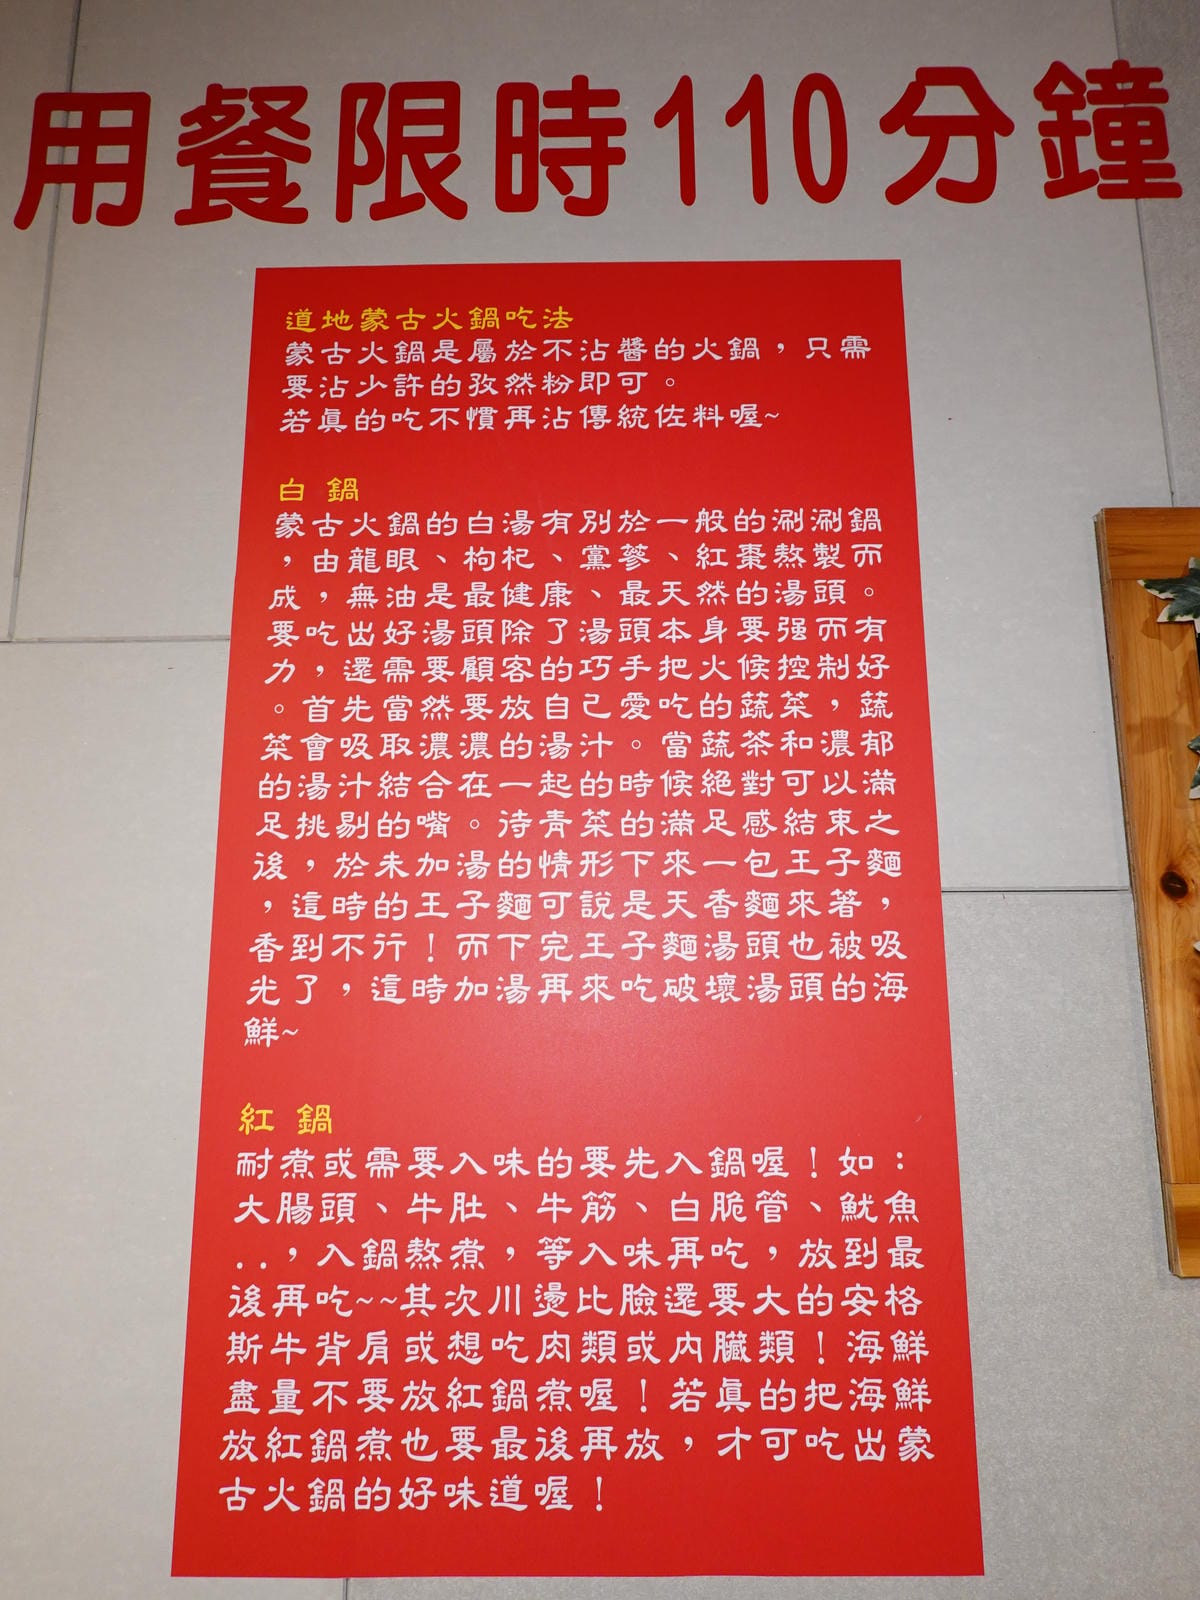 用餐限時110分鐘
道地蒙古火鍋吃法
蒙古火鍋是屬於不沾醬的火鍋，只需
要沾少許的孜然粉即可。
若真的吃不慣再沾傳統佐料喔~
白 鍋
蒙古火鍋的白湯有別於一般的涮涮鍋
，由龍眼、枸杞、黨蔘、紅棗熬製而
成，無油是最健康、最天然的湯頭。
要吃出好湯頭除了湯頭本身要強而有
力，還需要顧客的巧手把火候控制好
。首先當然要放自己愛吃的蔬菜，蔬
菜會吸取濃濃的湯汁。當蔬茶和濃郁
的湯汁結合在一起的時候絕對可以滿
足挑剔的嘴。待青菜的滿足感結束之
後，於未加湯的情形下來一包王子麵
，這時的王子麵可說是天香麵來著，
香到不行！而下完王子麵湯頭也被吸
光了，這時加湯再來吃破壞湯頭的海
鮮~
紅 鍋
耐煮或需要入味的要先入鍋喔！如：
大腸頭、牛肚、牛筋、白脆管、魷魚
..，入鍋熬煮，等入味再吃，放到最
後再吃~~其次川燙比臉還要大的安格
斯牛背肩或想吃肉類或內臟類！海鮮
盡量不要放紅鍋煮喔！若真的把海鮮
放紅鍋煮也要最後再放，才可吃出蒙
古火鍋的好味道喔！